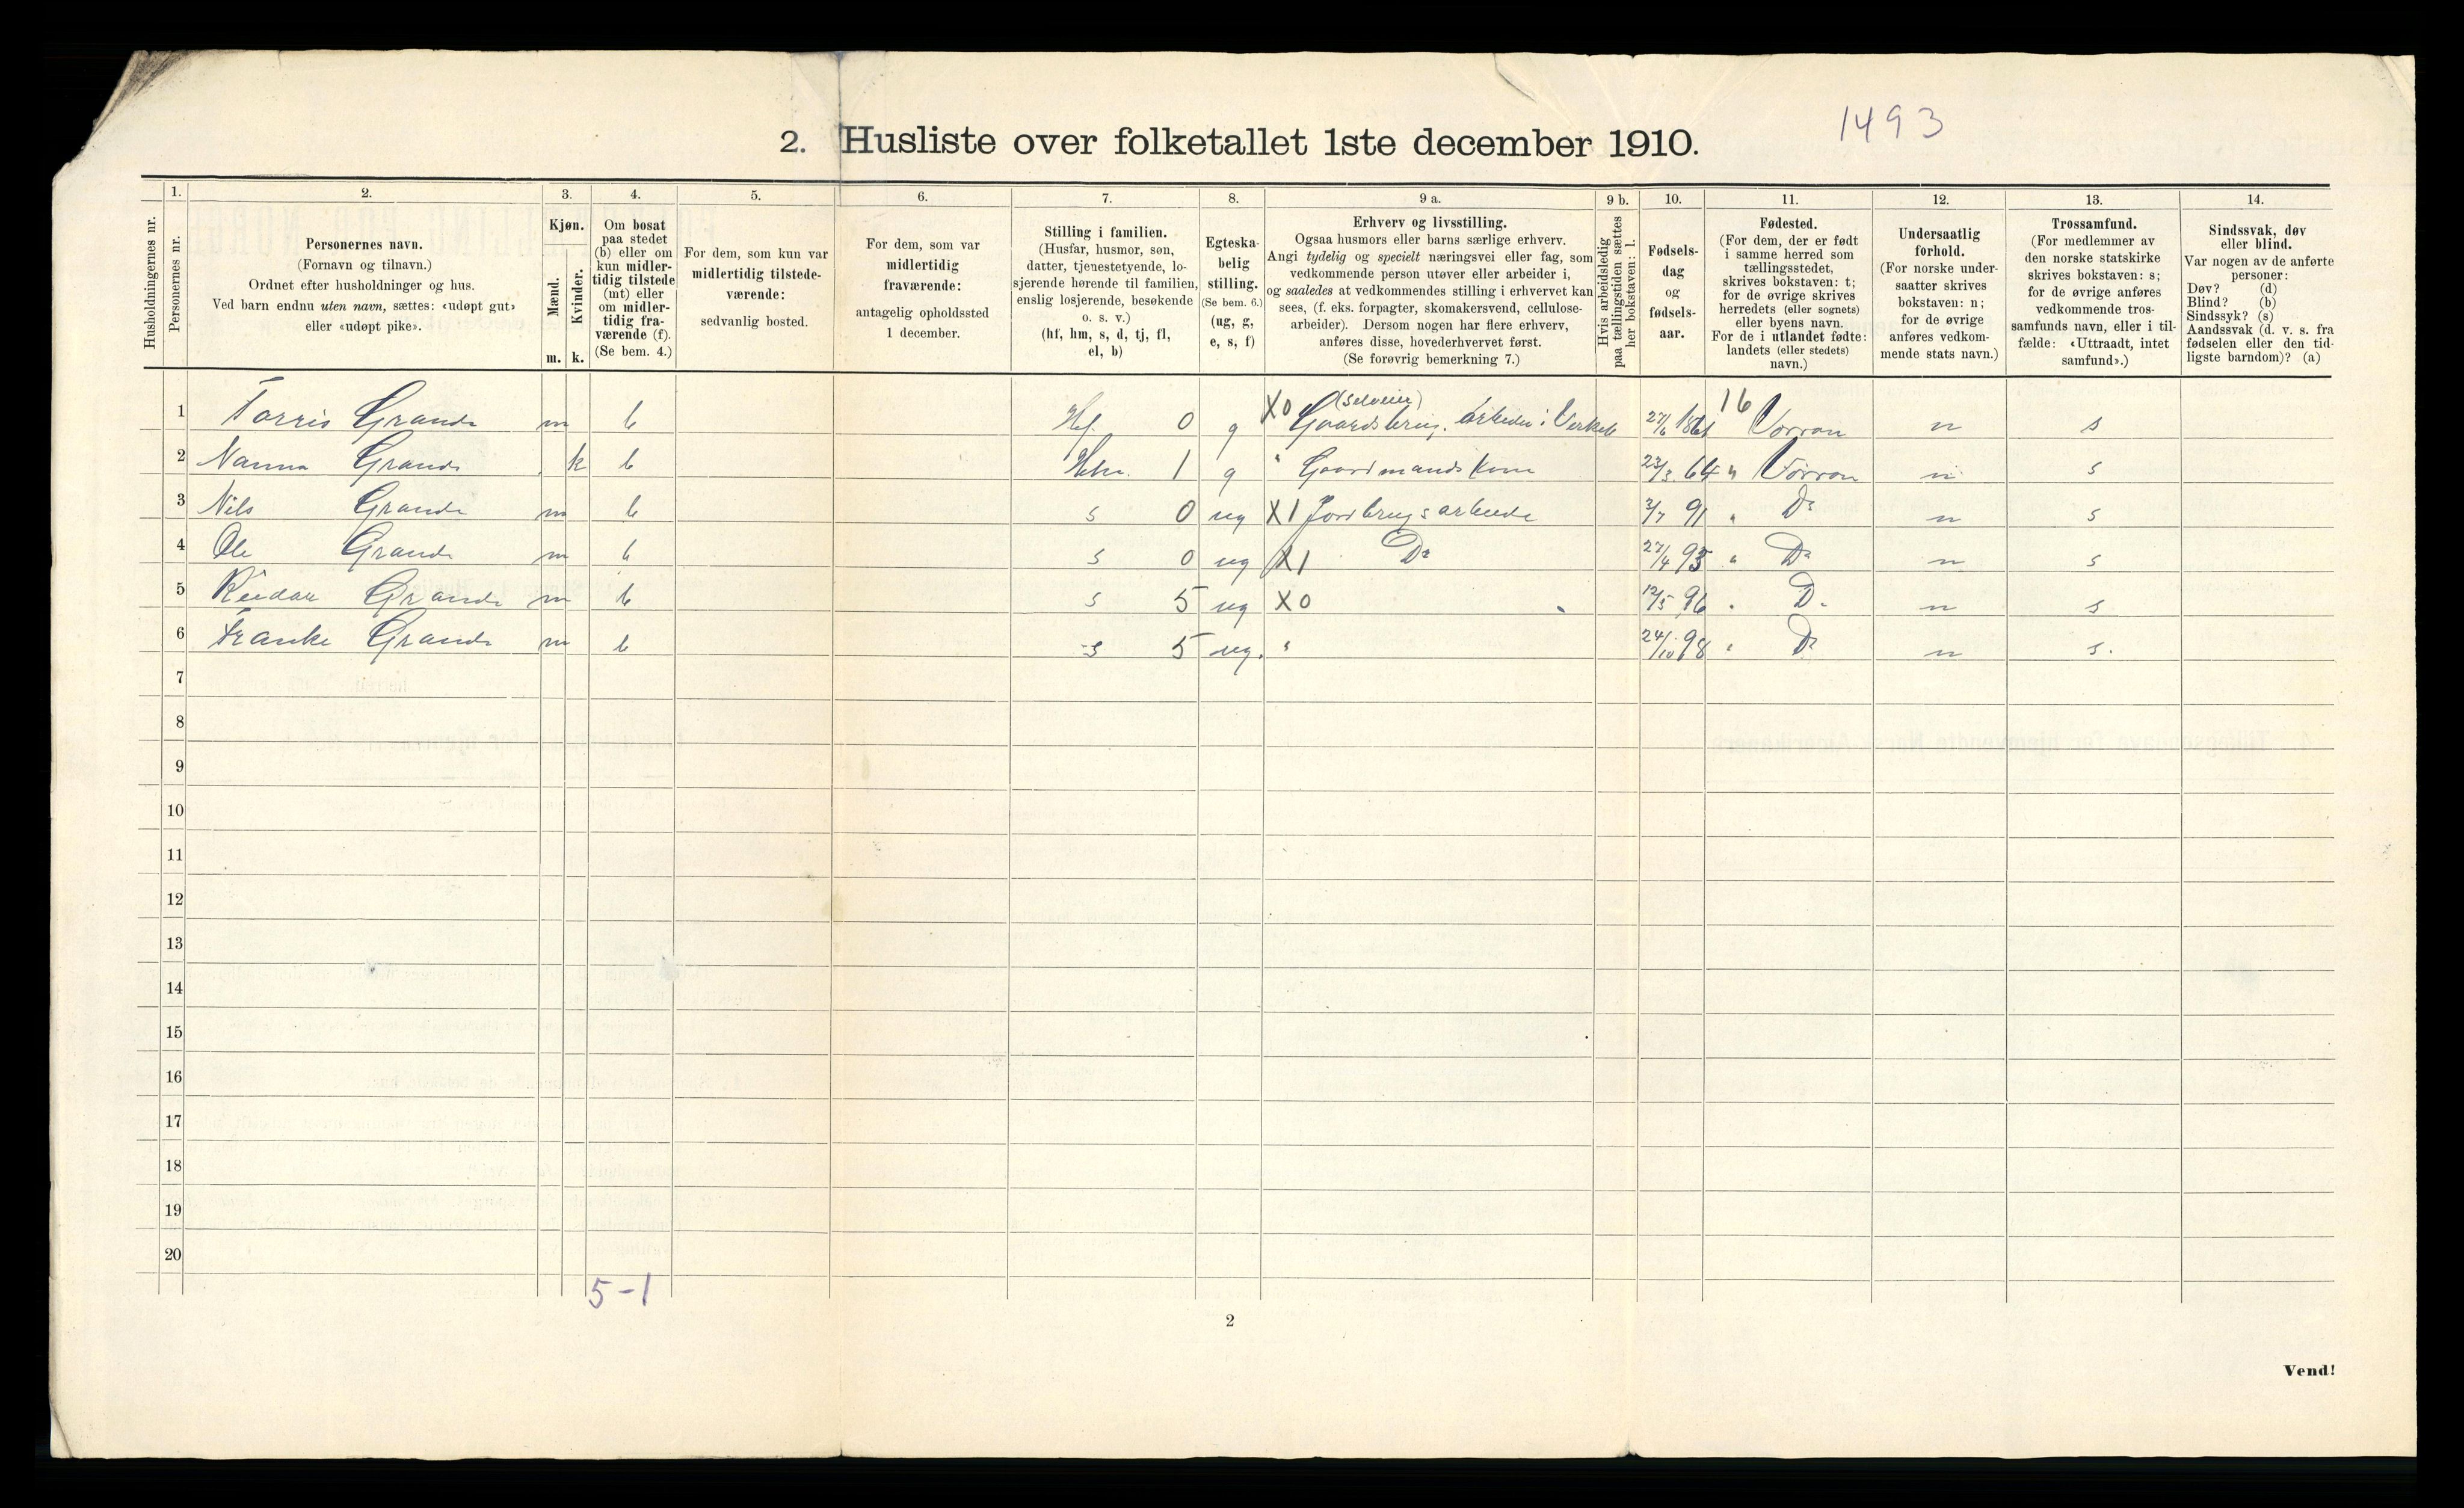 1493
2. Husliste over folketallet 1ste december 1910.
Husholdningernes nr.
1.
Personernes nr.
2.
Personernes navn.
(Fornavn og tilnavn.)
Ordnet efter husholdninger og hus.
Ved barn endnu uten navn, sættes: «udøpt gut»
eller «udøpt pike».
3.
Kjøn.
Mænd.
Kvinder.
m. k.
4.
Om bosat
paa stedet
(b) eller om
kun midler-
tidig tilstede
(mt) eller
om midler-
tidig fra-
værende (f).
(Se bem. 4.)
5.
For dem, som kun var
midlertidig tilstede-
værende:
sedvanlig bosted.
6.
For dem, som var
midlertidig
fraværende:
antagelig opholdssted
1 december.
7.
Stilling i familien.
(Husfar, husmor, søn,
datter, tjenestetyende, lo-
sjerende hørende til familien,
enslig losjerende, besøkende
o. s. v.)
(hf, hm, s, d, tj, fl,
el, b)
8.
Egteska-
belig
stilling.
(Se bem. 6.)
(ug, g,
e, s, f)
9 a.
Erhverv og livsstilling.
Ogsaa husmors eller barns særlige erhverv.
Angi tydelig og specielt næringsvei eller fag, som
vedkommende person utøver eller arbeider i,
og saaledes at vedkommendes stilling i erhvervet kan
sees, (f. eks. forpagter, skomakersvend, cellulose-
arbeider). Dersom nogen har flere erhverv,
anføres disse, hovederhvervet først.
(Se forøvrig bemerkning 7.)
9 b.
Hvis arbeidsledig
paa tællingstiden sættes
her bokstaven: l.
10.
Fødsels-
dag
og
fødsels-
aar.
11.
Fødested.
(For dem, der er født
i samme herred som
tællingsstedet,
skrives bokstaven: t;
for de øvrige skrives
herredets (eller sognets)
eller byens navn.
For de i utlandet fødte:
landets (eller stedets)
navn.)
12.
Undersaatlig
forhold.
(For norske under-
saatter skrives
bokstaven: n;
for de øvrige
anføres vedkom-
mende stats navn.)
13.
Trossamfund.
(For medlemmer av
den norske statskirke
skrives bokstaven: s;
for de øvrige anføres
vedkommende tros-
samfunds navn, eller i til-
fælde: «Uttraadt, intet
samfund».)
14.
Sindssvak, døv
eller blind.
Var nogen av de anførte
personer:
Døv? (d)
Blind? (b)
Sindssyk? (s)
Aandssvak (d. v. s. fra
fødselen eller den tid-
ligste barndom)? (a)
(Selveier) 16
1 Torris Grande m b Hf. 0 g X0 Gaardsbrug. Arbeider i Verket 27/6 1861 Værran n s
2 Nanna Grande k b Hm. 1 g " Gaardmandskone 22/3. 64 " Værran n s
3 Nils Grande m b s 0 ug X1 Jordbrugsarbeide 2/7 91 " Do n s
4 Ole Grande m b s 0 ug X1 Do 27/4 93 " Do n s
5 Reidar Grande m b s 5 ug X0 12/5 96 " Do n s
6 Franke Grande m b s 5 ug. " 24/10 98 " Do n s.
7
8
9
10
11
12
13
14
15
16
17
18
19
20
5-1
2
Vend!